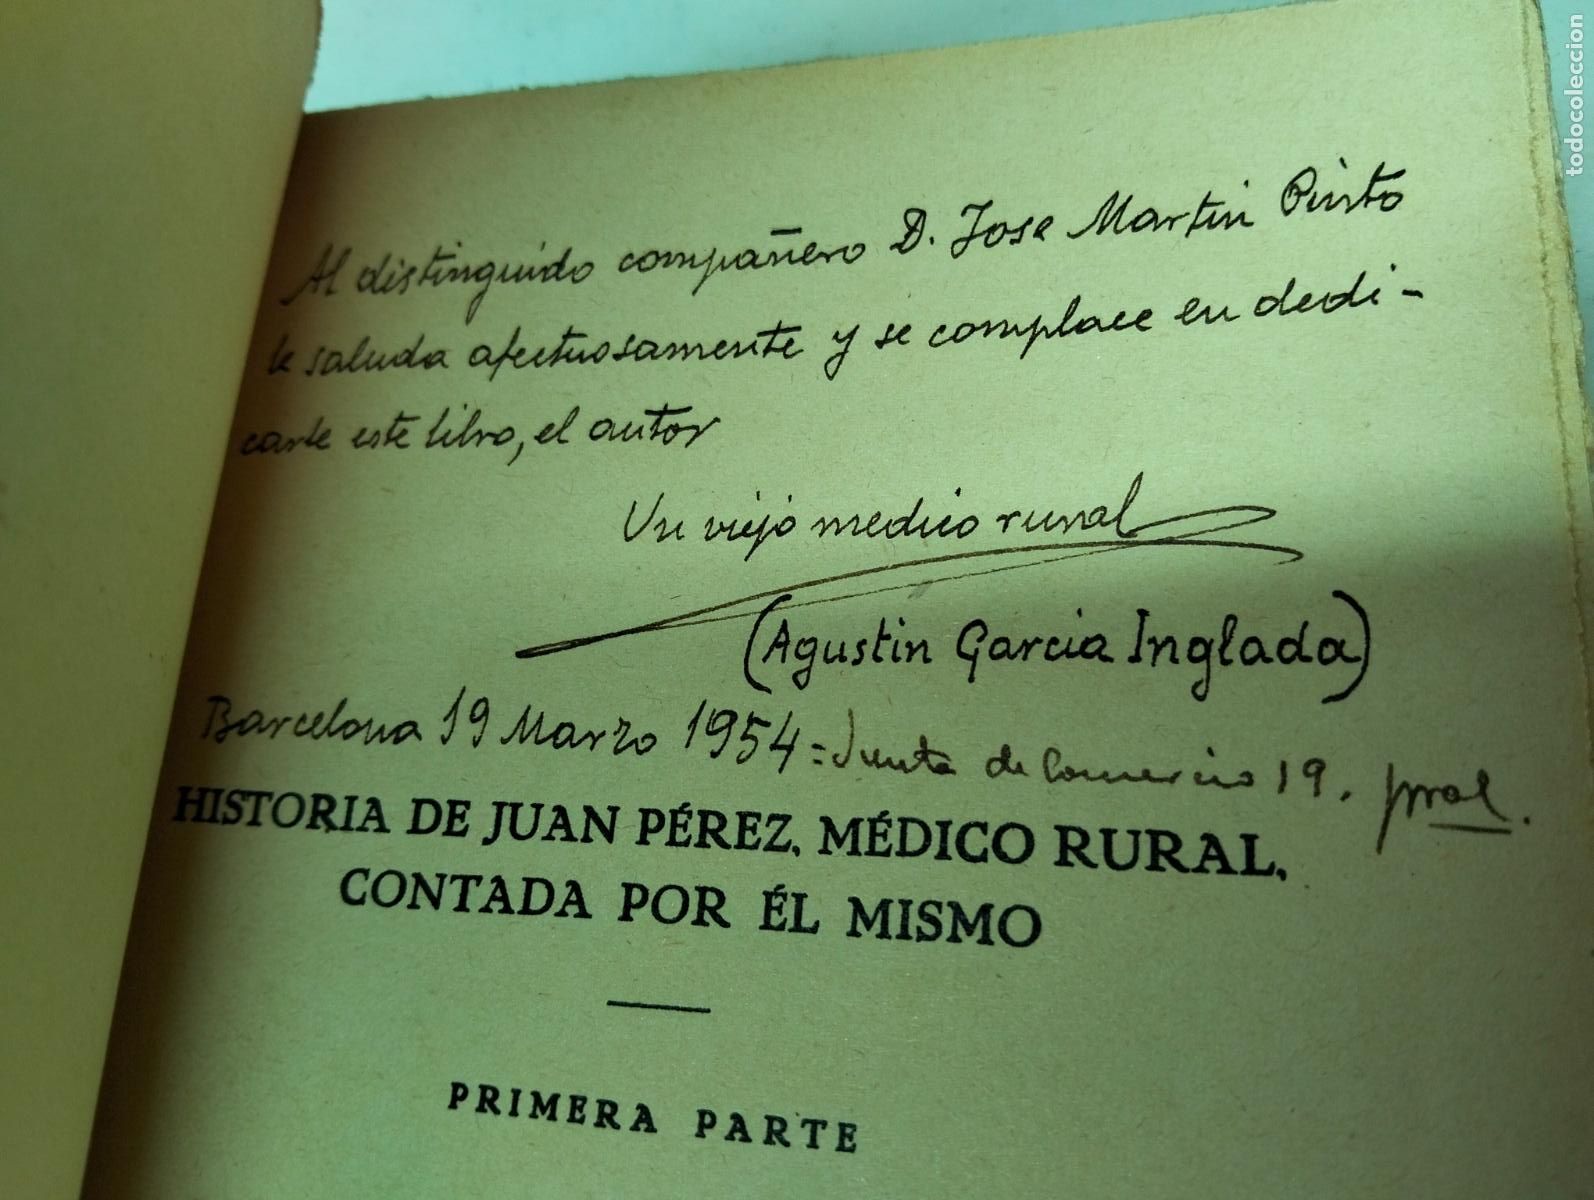 Al distinguido compañero D. Jose Martin Pinto
le saluda afectuosamente y se complace en dedi-
carle este libro, el autor
Un viejo medico rural
(Agustin Garcia Inglada)
Barcelona 19 Marzo 1954 = Junta de Comercio 19. pral.
HISTORIA DE JUAN PÉREZ, MÉDICO RURAL,
CONTADA POR ÉL MISMO
PRIMERA PARTE
todocoleccion